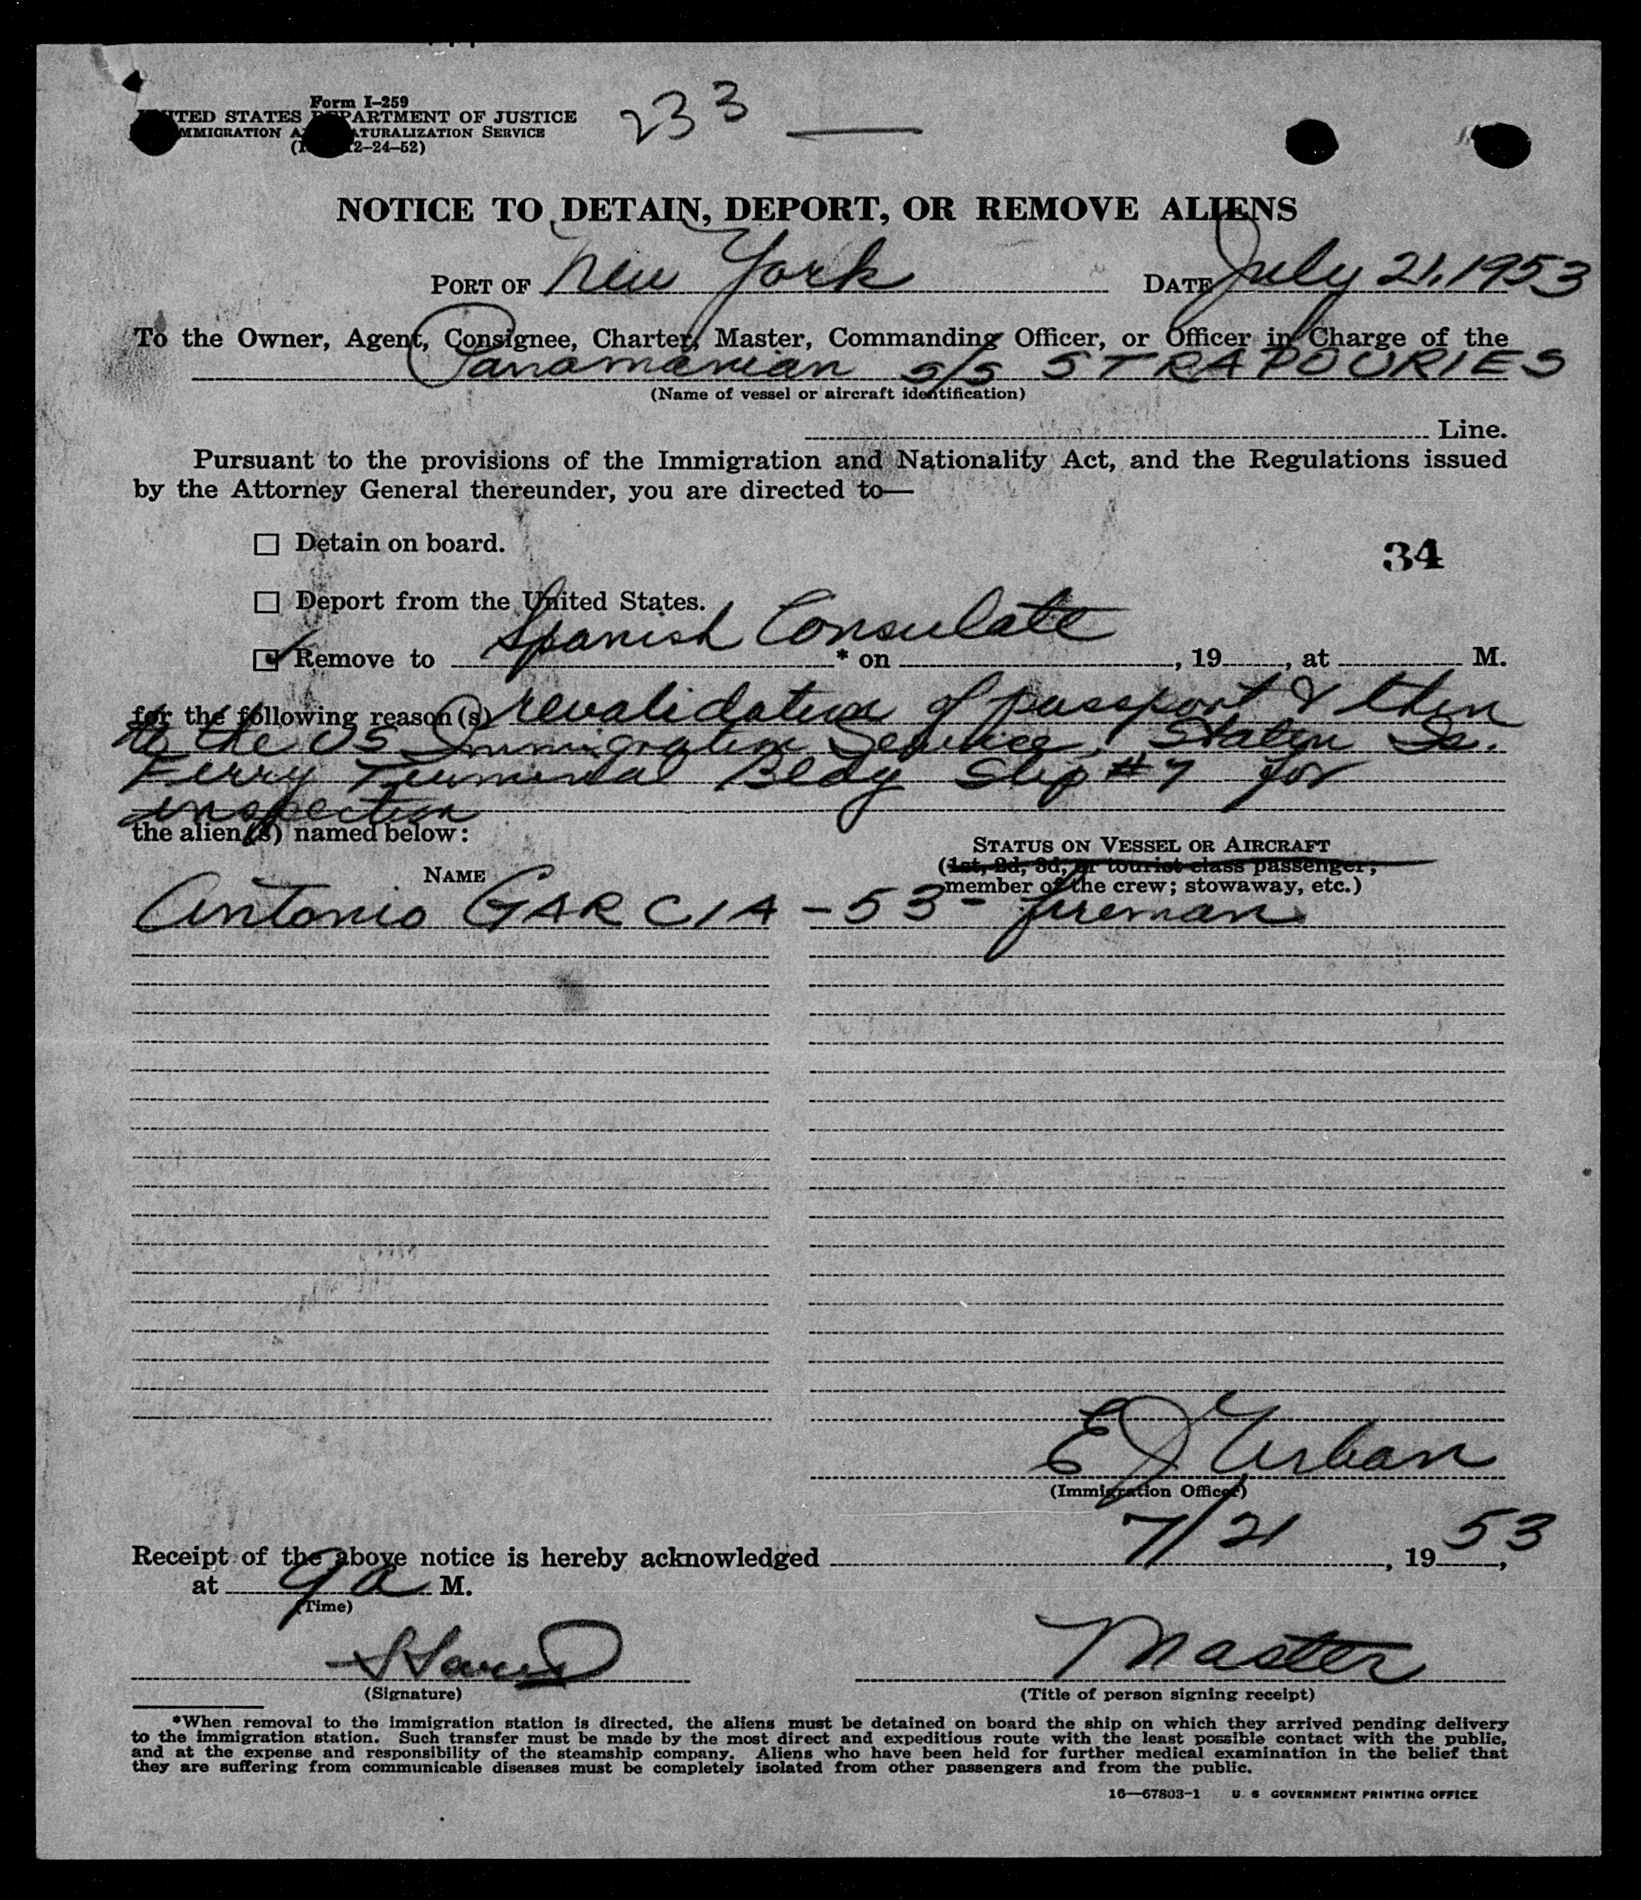 Form I-259
UNITED STATES DEPARTMENT OF JUSTICE
IMMIGRATION AND NATURALIZATION SERVICE
2-24-52)
233
NOTICE TO DETAIN, DEPORT, OR REMOVE ALIENS
PORT OF New York DATE July 21, 1953
To the Owner, Agent, Consignee, Charter, Master, Commanding Officer, or Officer in Charge of the
Panamanian s/s STRAPOURIES
(Name of vessel or aircraft identification)
Line.
Pursuant to the provisions of the Immigration and Nationality Act, and the Regulations issued
by the Attorney General thereunder, you are directed to—
Detain on board.
34
Deport from the United States.
Remove to Spanish Consulate * on , 19 , at M.
for the following reason(s) revalidation of passport & then
to the US Immigration Service, Staten Is.
Ferry Terminal Bldg Slip #7 for
inspection
the alien(s) named below:
STATUS ON VESSEL OR AIRCRAFT
(1st, 2d, 3d, or tourist class passenger;
NAME
member of the crew; stowaway, etc.)
Antonio GARCIA - 53 - fireman
E J Urban
(Immigration Officer)
Receipt of the above notice is hereby acknowledged 7/21, 1953,
at 9 a M.
(Time)
Master
(Signature) (Title of person signing receipt)
*When removal to the immigration station is directed, the aliens must be detained on board the ship on which they arrived pending delivery
to the immigration station. Such transfer must be made by the most direct and expeditious route with the least possible contact with the public,
and at the expense and responsibility of the steamship company. Aliens who have been held for further medical examination in the belief that
they are suffering from communicable diseases must be completely isolated from other passengers and from the public.
16—67803-1 U. S GOVERNMENT PRINTING OFFICE